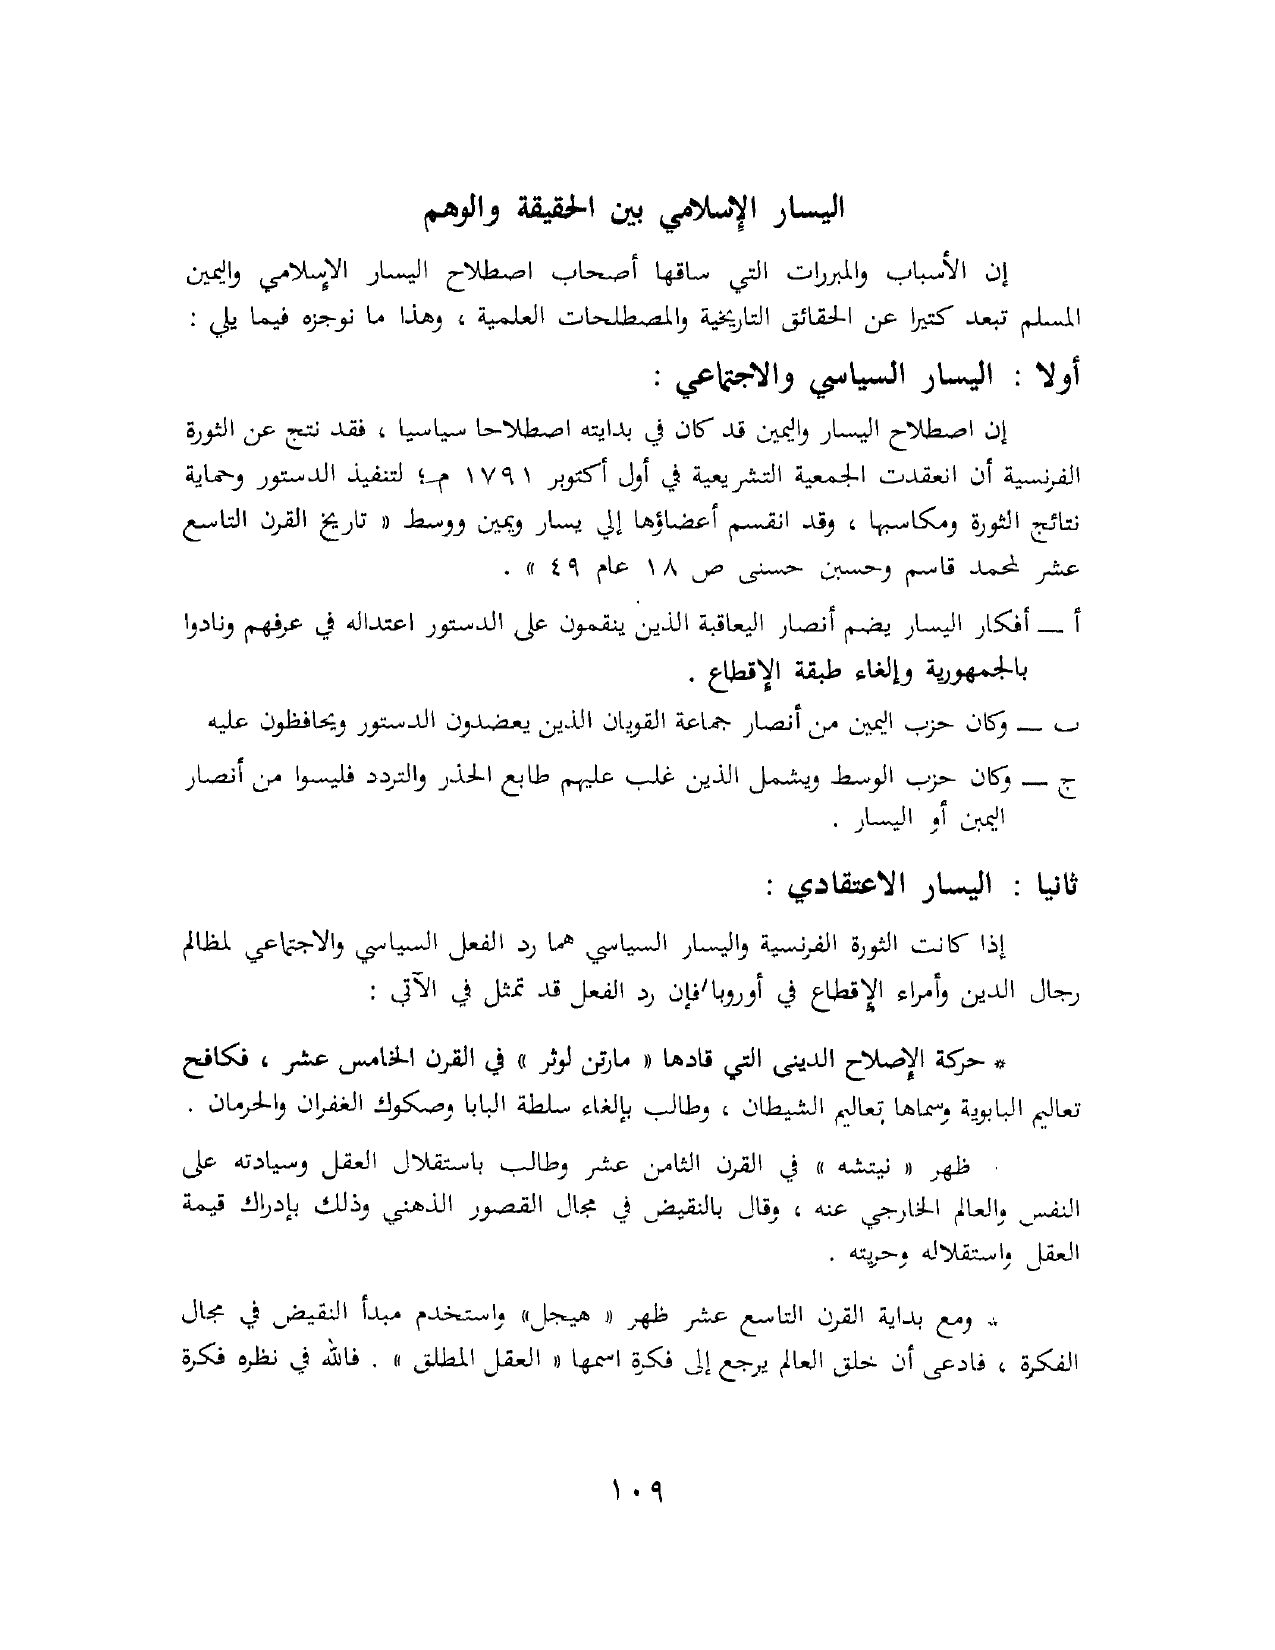 اليسار الإسلامي بين الحقيقة والوهم
إن الأسباب والمبررات التي ساقها أصحاب اصطلاح اليسار الإسلامي واليمين
المسلم تبعد كثيرا عن الحقائق التاريخية والمصطلحات العلمية ، وهذا ما نوجزه فيما يلي :
أولا : اليسار السياسي والاجتماعي :
إن اصطلاح اليسار واليمين قد كان في بدايته اصطلاحا سياسيا ، فقد نتج عن الثورة
الفرنسية أن انعقدت الجمعية التشريعية في أول أكتوبر ١٧٩١ م؛ لتنفيذ الدستور وحماية
نتائج الثورة ومكاسبها ، وقد انقسم أعضاؤها إلى يسار ويمين ووسط « تاريخ القرن التاسع
عشر لمحمد قاسم وحسين حسنى ص ١٨ عام ٤٩ » .
أ — أفكار اليسار يضم أنصار اليعاقبة الذين ينقمون على الدستور اعتداله في عرفهم ونادوا
بالجمهورية وإلغاء طبقة الإقطاع .
ب — وكان حزب اليمين من أنصار جماعة القويان الذين يعضدون الدستور ويحافظون عليه
ج — وكان حزب الوسط ويشمل الذين غلب عليهم طابع الحذر والتردد فليسوا من أنصار
اليمين أو اليسار .
ثانيا : اليسار الاعتقادي :
إذا كانت الثورة الفرنسية واليسار السياسي هما رد الفعل السياسي والاجتماعي لمظالم
رجال الدين وأمراء الإقطاع في أوروبا/فإن رد الفعل قد تمثل في الآتي :
* حركة الإصلاح الدينى التي قادها « مارتن لوثر » في القرن الخامس عشر ، فكافح
تعاليم البابوية وسماها تعاليم الشيطان ، وطالب بإلغاء سلطة البابا وصكوك الغفران والحرمان .
ظهر « نيتشه » في القرن الثامن عشر وطالب باستقلال العقل وسيادته على
النفس والعالم الخارجي عنه ، وقال بالنقيض في مجال القصور الذهني وذلك بإدراك قيمة
العقل واستقلاله وحريته .
* ومع بداية القرن التاسع عشر ظهر « هيجل» واستخدم مبدأ النقيض في مجال
الفكرة ، فادعى أن خلق العالم يرجع إلى فكرة اسمها « العقل المطلق » . فالله في نظره فكرة
١٠٩